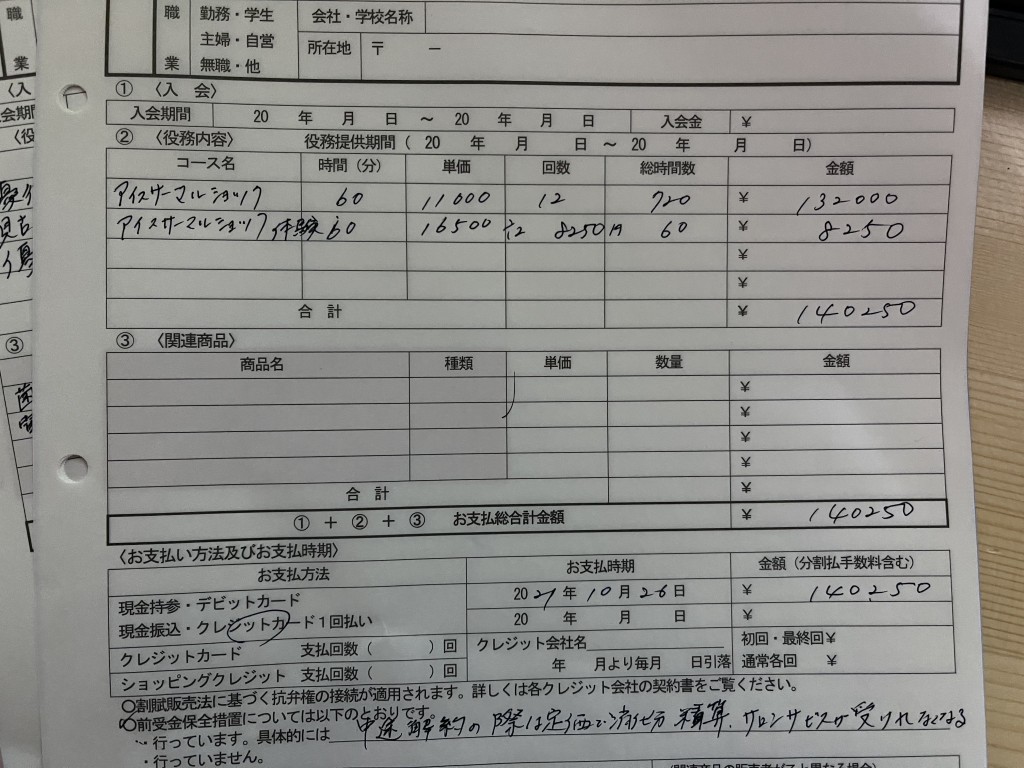 職業 勤務・学生 主婦・自営 無職・他
会社・学校名称
所在地 〒 －
① 〈入 会〉
入会期間 20 年 月 日 ～ 20 年 月 日 入会金 ¥
② 〈役務内容〉 役務提供期間 ( 20 年 月 日 ～ 20 年 月 日)
コース名 時間（分） 単価 回数 総時間数 金額
アイスサーマルショック 60 11000 12 720 ¥ 132000
アイスサーマルショック 体験 60 16500 8250円 60 ¥ 8250
¥
¥
合 計 ¥ 140250
③ 〈関連商品〉
商品名 種類 単価 数量 金額
¥
¥
¥
¥
合 計 ¥
① ＋ ② ＋ ③ お支払総合計金額 ¥ 140250
〈お支払い方法及びお支払時期〉
お支払方法 お支払時期 金額（分割払手数料含む）
現金持参・デビットカード 2021年10月26日 ¥ 140250
現金振込・クレジットカード1回払い 20 年 月 日
クレジットカード 支払回数（ ）回 クレジット会社名 初回・最終回¥
ショッピングクレジット 支払回数（ ）回 年 月より毎月 日引落 通常各回 ¥
○割賦販売法に基づく抗弁権の接続が適用されます。詳しくは各クレジット会社の契約書をご覧ください。
○前受金保全措置については以下のとおりです。
・行っています。具体的には 中途解約の際は定価で消化分 精算、サロンサービスが受けれなくなる
・行っていません。